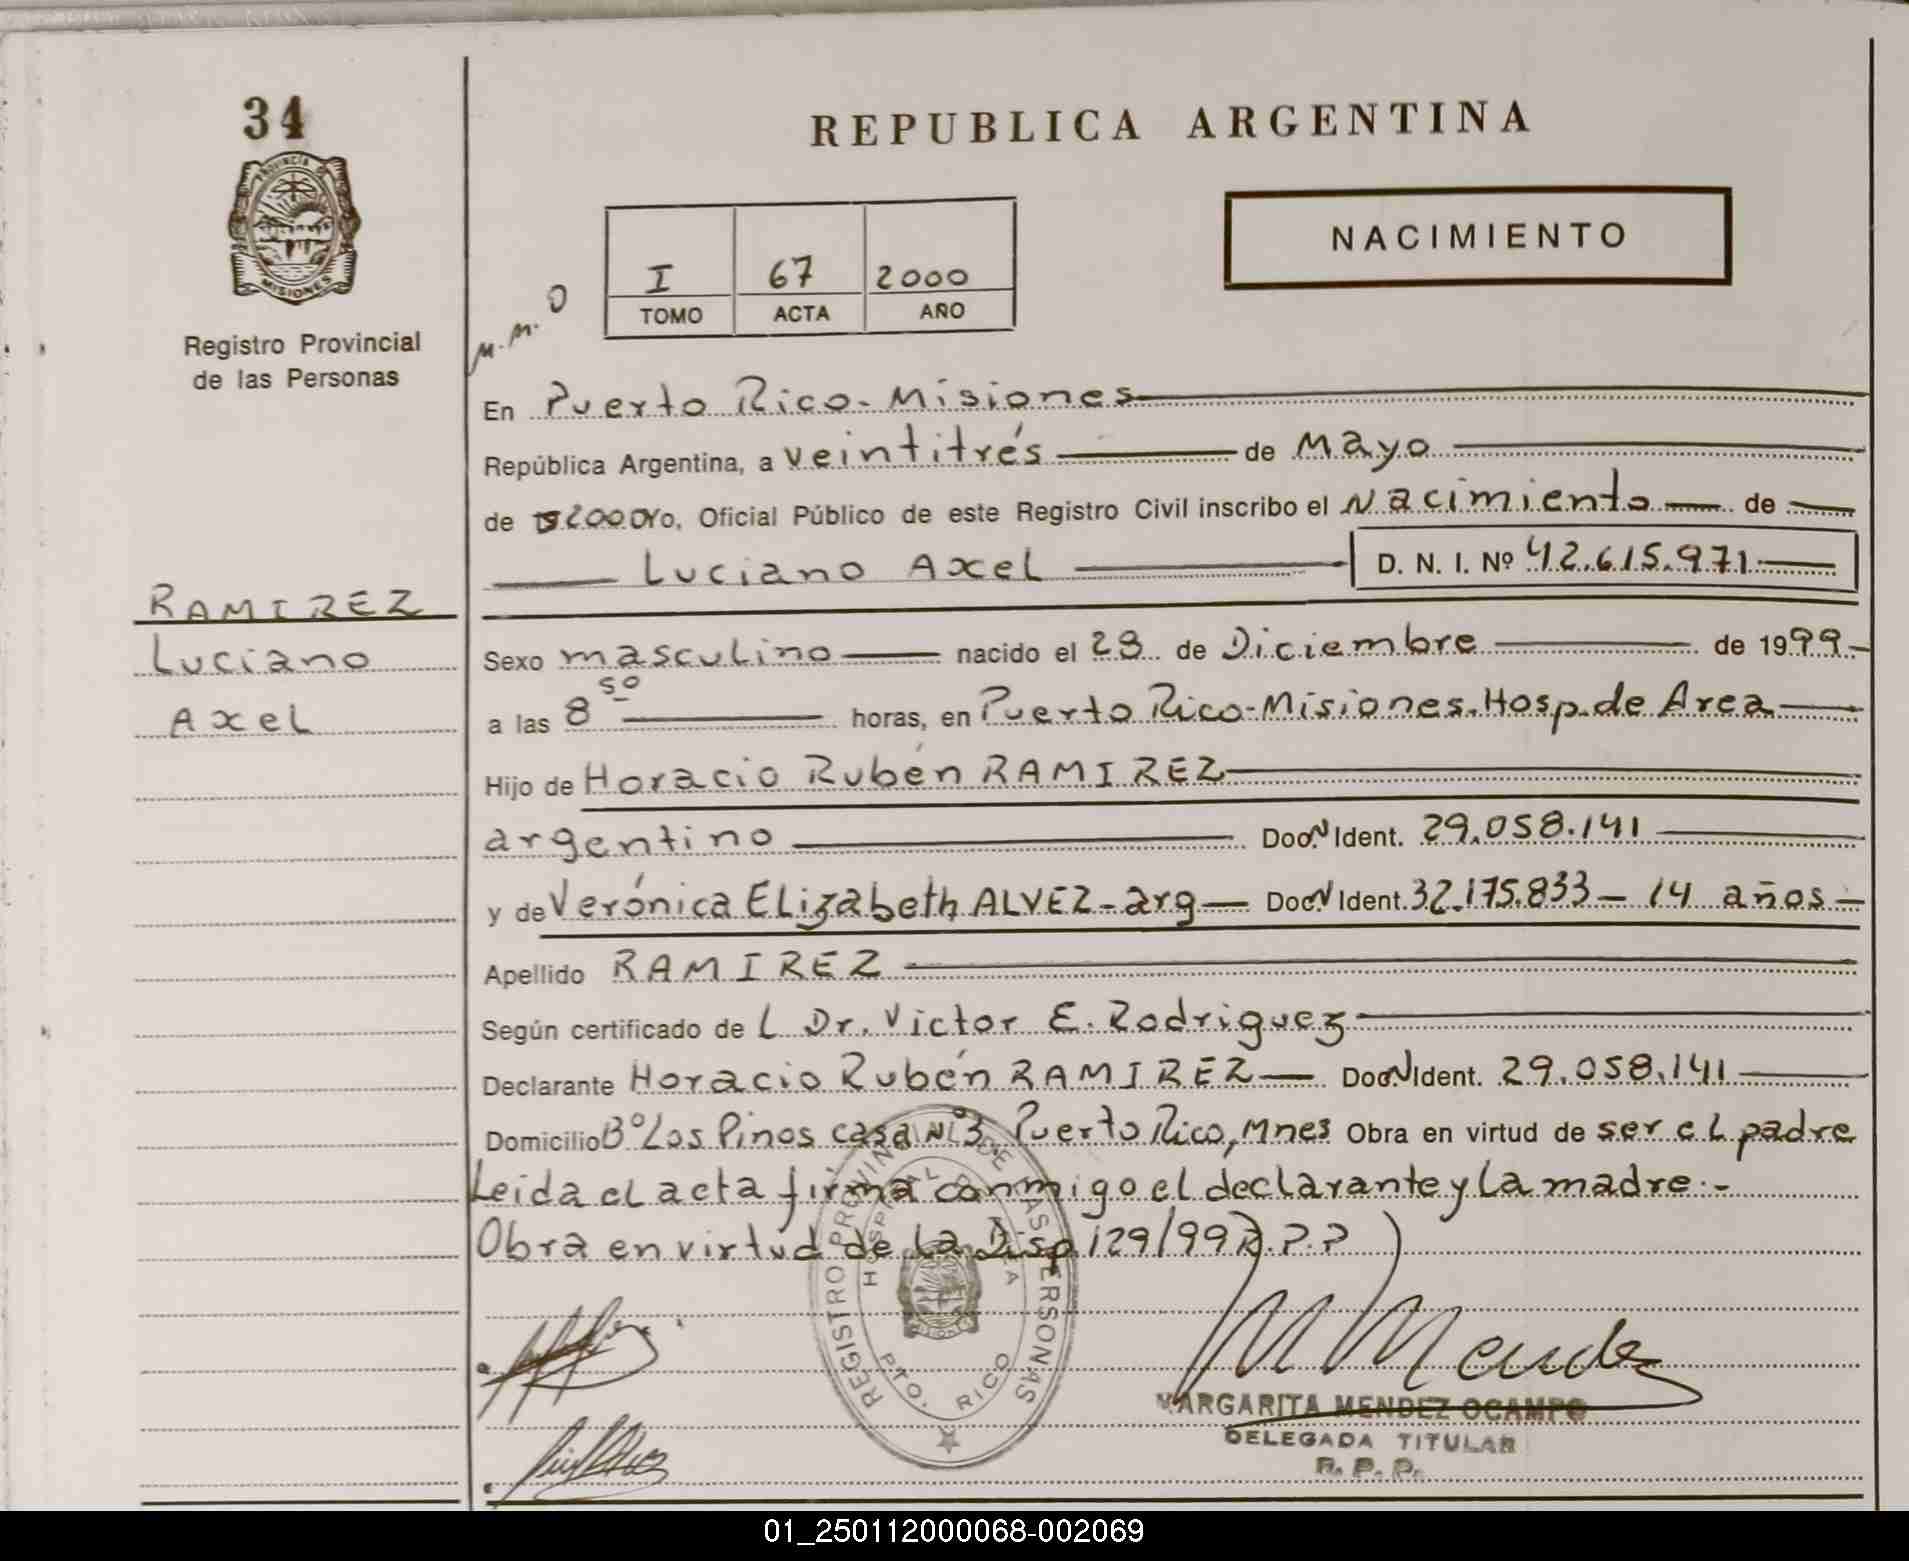 34
PROVINCIA
MISIONES
Registro Provincial
de las Personas
REPUBLICA ARGENTINA
NACIMIENTO
I 67 2000
TOMO ACTA AÑO
M.M. O
En Puerto Rico-Misiones
República Argentina, a veintitrés de Mayo
de 2000 Yo, Oficial Público de este Registro Civil inscribo el Nacimiento de
Luciano Axel D. N. I. Nº 42.615.971
RAMIREZ
Luciano
Axel
Sexo masculino nacido el 28 de Diciembre de 1999-
a las 8 50 horas, en Puerto Rico-Misiones.Hosp.de Area
Hijo de Horacio Rubén RAMIREZ
argentino Doc.N Ident. 29.058.141
y de Verónica Elizabeth ALVEZ-arg- Doc.N Ident. 32.175.833- 14 años-
Apellido RAMIREZ
Según certificado de L Dr. Victor E. Rodriguez
Declarante Horacio Rubén RAMIREZ- Doc.N Ident. 29.058.141
Domicilio Bº Los Pinos casa Nº3 Puerto Rico, Mnes Obra en virtud de ser el padre
Leida el acta firma conmigo el declarante y la madre.-
Obra en virtud de la Disp 129/99 R.P.P
REGISTRO PROVINCIAL DE LAS PERSONAS
HOSPITAL DE AREA
PTO. RICO
M Mendez
MARGARITA MENDEZ OCAMPO
DELEGADA TITULAR
R. P. P.
01_250112000068-002069